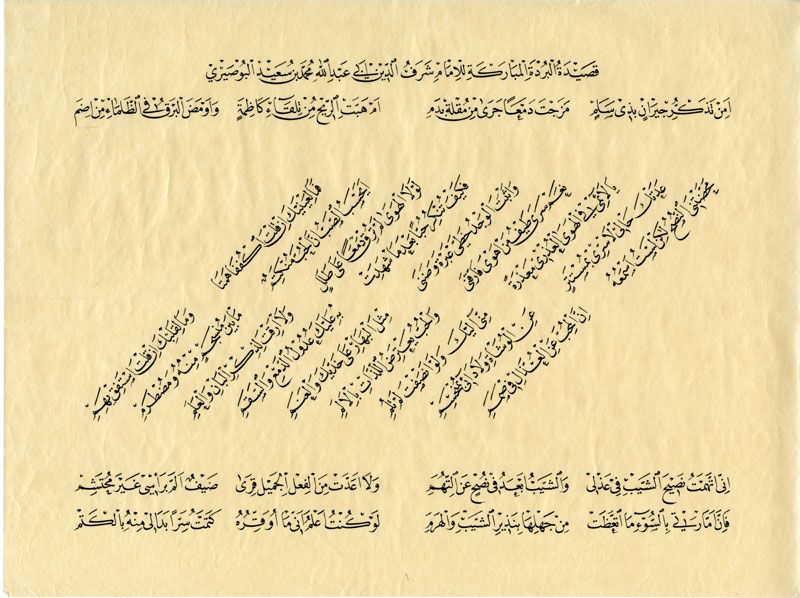 قَصِيدَةُ الْبُرْدَةِ الْمُبَارَكَةِ لِلْاِمَامِ شَرَفُ الدِّينِ اَبِي عَبْدِ اللهِ مُحَمَّدْ بِنْ سَعِيدِ الْبُوصِيرِي
اَمِنْ تَذَكُّرِ جِيرَانٍ بِذِي سَلَمِ مَزَجْتَ دَمْعًا جَرٰى مِنْ مُقْلَةٍ بِدَمِ اَمْ هَبَّتِ الرِّيحُ مِنْ تِلْقَاءِ كَاظِمَةٍ وَاَوْمَضَ الْبَرْقُ فِي الظَّلْمَاءِ مِنْ اِضَمِ
فَمَا لِعَيْنَيْكَ اِنْ قُلْتَ اكْفُفَا هَمَتَا
وَمَا لِقَلْبِكَ اِنْ قُلْتَ اسْتَفِقْ يَهِمِ
اَيَحْسَبُ الصَّبُّ اَنَّ الْحُبَّ مُنْكَتِمٌ
مَا بَيْنَ مُنْسَجِمٍ مِنْهُ وَمُضْطَرِمِ
لَوْلَا الْهَوٰى لَمْ تُرِقْ دَمْعًا عَلٰى طَلَلٍ
وَلَا اَرِقْتَ لِذِكْرِ الْبَانِ وَالْعَلَمِ
فَكَيْفَ تُنْكِرُ حُبًّا بَعْدَ مَا شَهِدَتْ
بِهِ عَلَيْكَ عُدُولُ الدَّمْعِ وَالسَّقَمِ
وَاَثْبَتَ الْوَجْدُ خَطَّيْ عَبْرَةٍ وَضَنًى
مِثْلَ الْبَهَارِ عَلٰى خَدَّيْكَ وَالْعَنَمِ
نَعَمْ سَرٰى طَيْفُ مَنْ اَهْوٰى فَاَرَّقَنِي
وَالْحُبُّ يَعْتَرِضُ اللَّذَّاتِ بِالْاَلَمِ
يَا لَائِمِي فِي الْهَوَى الْعُذْرِيِّ مَعْذِرَةً
مِنِّي اِلَيْكَ وَلَوْ اَنْصَفْتَ لَمْ تَلُمِ
عَدَتْكَ حَالِي لَا سِرِّي بِمُسْتَتِرٍ
عَنِ الْوُشَاةِ وَلَا دَائِي بِمُنْحَسِمِ
مَحَّضْتَنِي النُّصْحَ لٰكِنْ لَسْتُ اَسْمَعُهُ
اِنَّ الْمُحِبَّ عَنِ الْعُذَّالِ فِي صَمَمِ
اِنِّي اتَّهَمْتُ نَصِيحَ الشَّيْبِ فِي عَذَلِي وَالشَّيْبُ اَبْعَدُ فِي نُصْحٍ عَنِ التُّهَمِ وَلَا اَعَدَّتْ مِنَ الْفِعْلِ الْجَمِيلِ قِرٰى ضَيْفٍ اَلَمَّ بِرَاْسِي غَيْرَ مُحْتَشِمِ
فَاِنَّ اَمَّارَتِي بِالسُّوۤءِ مَا اتَّعَظَتْ مِنْ جَهْلِهَا بِنَذِيرِ الشَّيْبِ وَالْهَرَمِ لَوْ كُنْتُ اَعْلَمُ اَنِّي مَا اُوَقِّرُهُ كَتَمْتُ سِرًّا بَدَا لِي مِنْهُ بِالْكَتَمِ